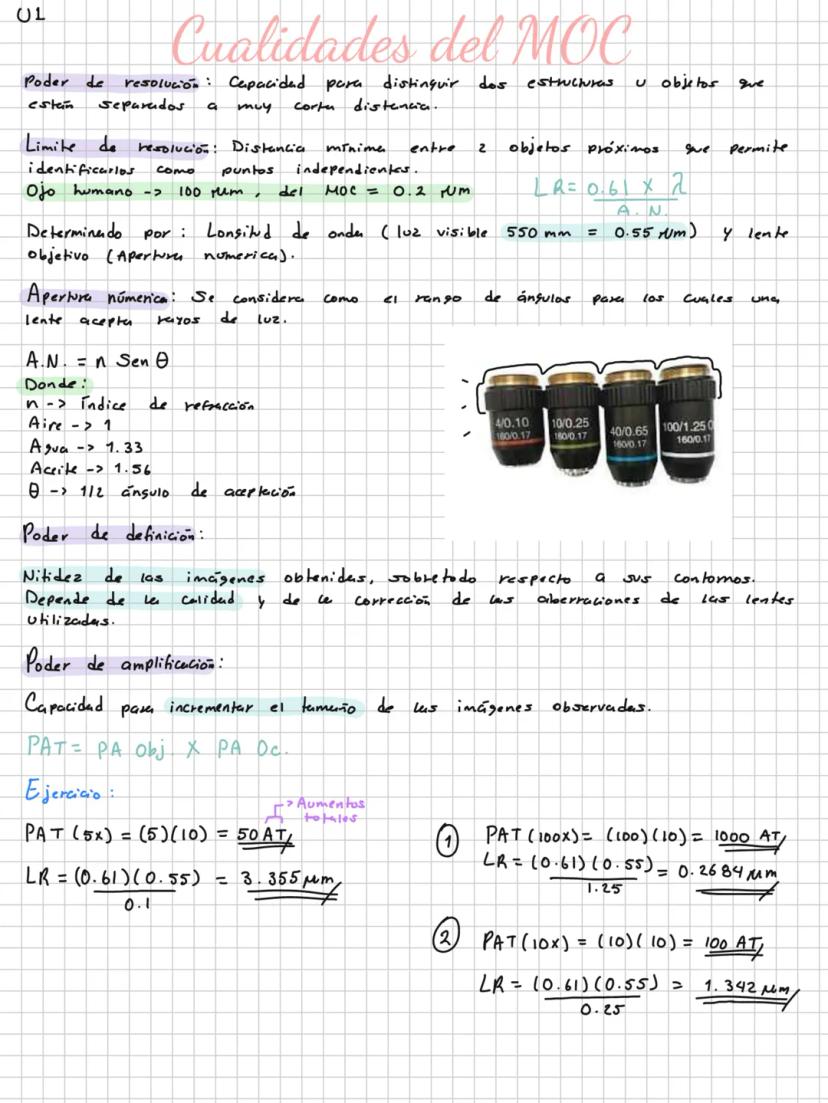 U1
Cualidades del MOC
Poder de resolución: Capacidad para distinguir dos estructuras u objetos que
están separados a muy corta distancia.
Limite de resolución: Distancia mínima entre 2 objetos próximos que permite
identificarlos como puntos independientes.
Ojo humano -> 100 μm, del MOC = 0.2 μm
LR = 0.61 x λ
A.N.
Determinado por: Longitud de onda (luz visible 550 mm = 0.55 μm) y lente
objetivo (Apertura numerica).
Apertura númerica: Se considera como el rango de ángulos para los cuales una
lente acepta rayos de luz.
A.N. = n Sen θ
Donde:
n -> índice de refracción
Aire -> 1
Agua -> 1.33
Aceite -> 1.56
θ -> 1/2 ángulo de aceptación
4/0.10
160/0.17
10/0.25
160/0.17
40/0.65
160/0.17
100/1.25
160/0.17
Poder de definición:
Nitidez de las imágenes obtenidas, sobretodo respecto a sus contornos.
Depende de la calidad y de la corrección de las aberraciones de las lentes
utilizadas.
Poder de amplificación:
Capacidad para incrementar el tamaño de las imágenes observadas.
PAT = PA Obj. X PA Oc.
Ejercicio:
-> Aumentos
totales
PAT (5x) = (5)(10) = 50 AT
LR = (0.61)(0.55) = 3.355 μm
0.1
1 PAT (100x) = (100)(10) = 1000 AT
LR = (0.61)(0.55) = 0.2684 μm
1.25
2 PAT (10x) = (10)(10) = 100 AT
LR = (0.61)(0.55) = 1.342 μm
0.25